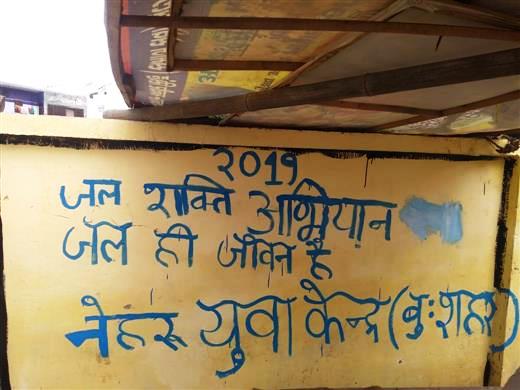 २०१९
जल शक्ति अभियान
जल ही जीवन है
नेहरू युवा केन्द्र (बु:शहर)